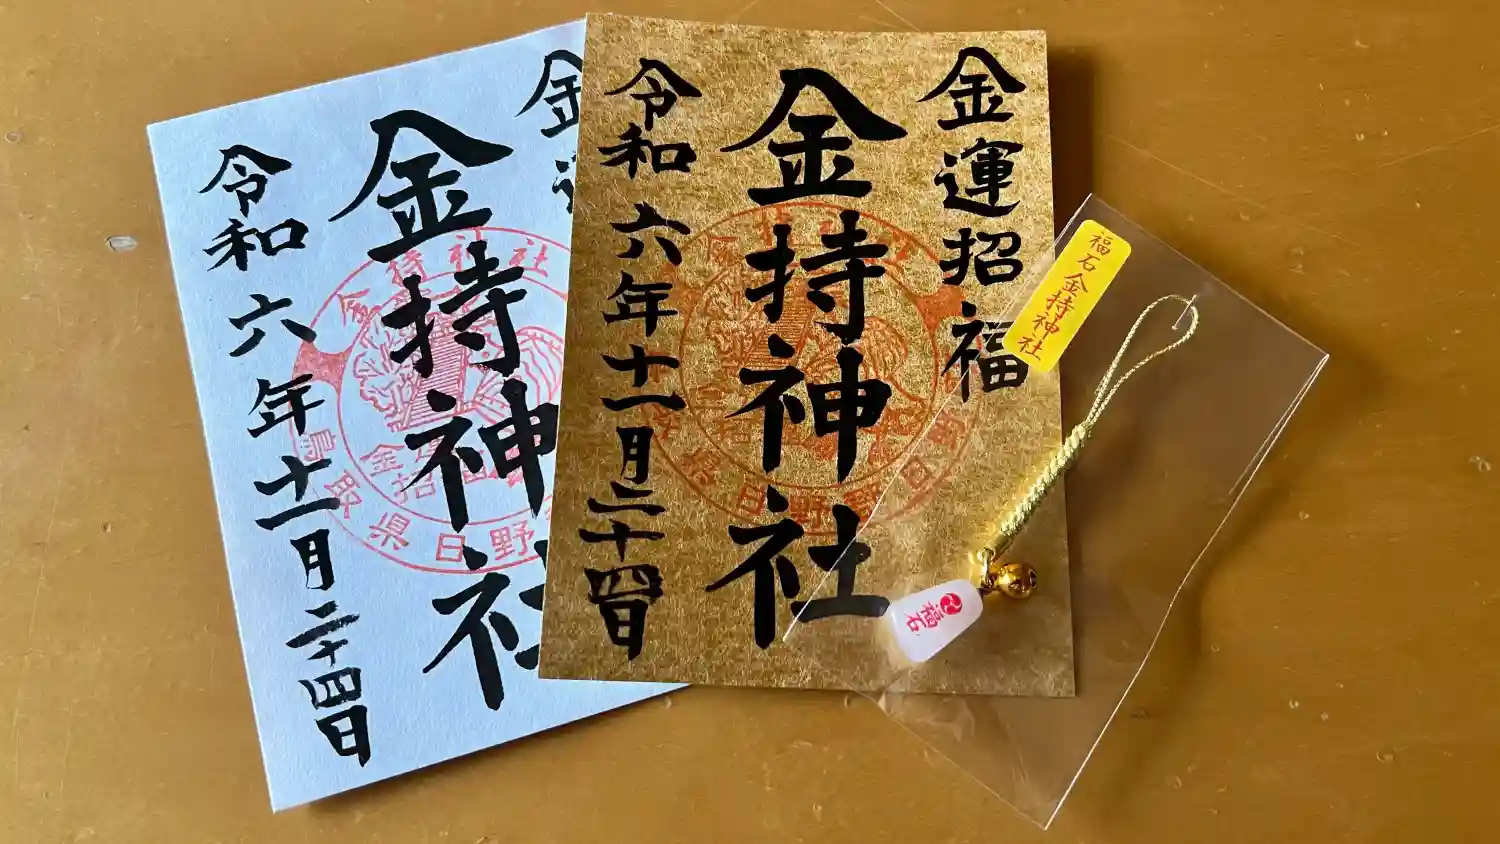 金運
金持神社
令和六年十一月二十四日
金持神社
鳥取県日野
金運招福
金持神社
令和六年十一月二十四日
福石金持神社
福石